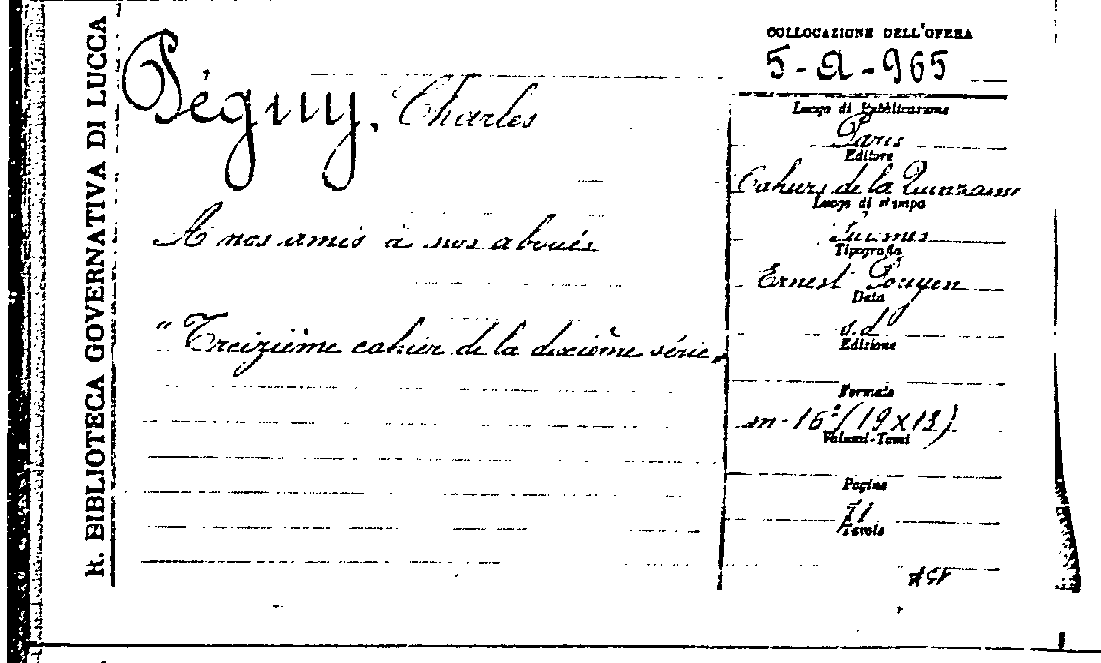 R. BIBLIOTECA GOVERNATIVA DI LUCCA
Péguy, Charles
A nos amis à nos aboués
"Treizième cahier de la dixième série„
COLLOCAZIONE DELL'OPERA
5-a-965
Luogo di Pubblicazione
Paris
Editore
Cahiers de la Quinzaine
Luogo di stampa
Suresnes
Tipografia
Ernest Payen
Data
s.d.
Edizione
Formato
in-16° (19x12)
Volumi-Tomi
Pagine
71
Tavole